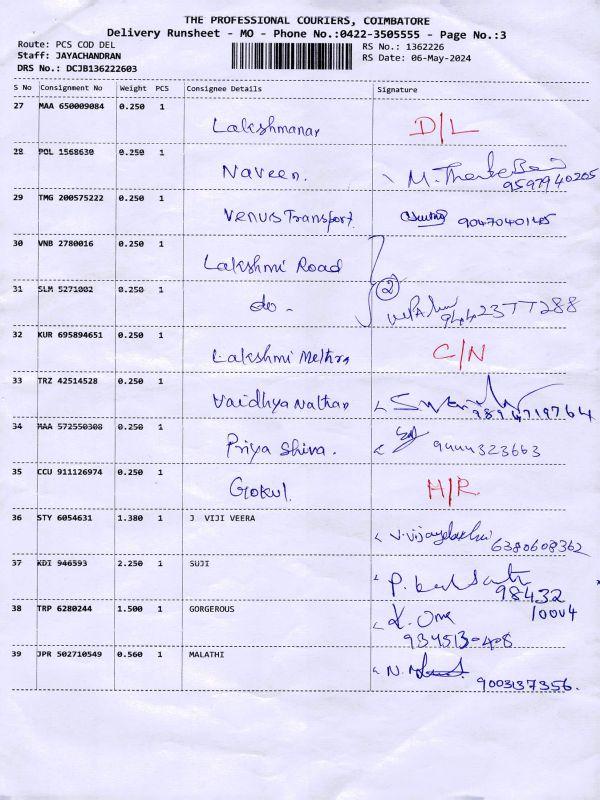 THE PROFESSIONAL COURIERS, COIMBATORE
Delivery Runsheet - MO - Phone No.:0422-3505555 - Page No.:3
Route: PCS COD DEL RS No.: 1362226
Staff: JAYACHANDRAN RS Date: 06-May-2024
DRS No.: DCJB136222603
S No Consignment No Weight PCS Consignee Details Signature
27 MAA 650009084 0.250 1
Lakshmanan D/L
28 POL 1568630 0.250 1
Naveen.
9597940205
29 TMG 200575222 0.250 1
Venus Transport. 9047040145
30 VNB 2780016 0.250 1
Lakshmi Road
31 SLM 5271002 0.250 1 2
do -
32 KUR 695894651 0.250 1
Lakshmi C/N
33 TRZ 42514528 0.250 1
Vaidhya Nathan 9894719764
34 MAA 572550308 0.250 1
Priya Shiva. 9444323663
35 CCU 911126974 0.250 1
Gokul. H/R
36 STY 6054631 1.380 1 J VIJI VEERA
6380608362
37 KDI 946593 2.250 1 SUJI
98432
38 TRP 6280244 1.500 1 GORGEROUS 10004
39 JPR 502710549 0.560 1 MALATHI
9003137356.